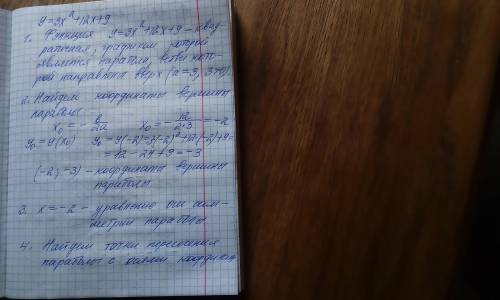 y=3x²+12x+9
1. Функция y=3x²+12x+9 – квад-
ратичная, графиком которой
является парабола, ветви кото-
рой направлены вверх (a=3, 3>0).
2. Найдем координаты вершины
параболы
x₀ = -b/2a x₀ = -12/2·3 = -2
y₀ = y(x₀) y₀ = y(-2) = 3(-2)²+12·(-2)+9=
=12-24+9=-3
(-2; -3) – координаты вершины
параболы
3. x=-2 – уравнение оси сим-
метрии параболы
4. Найдем точки пересечения
параболы с осями координат